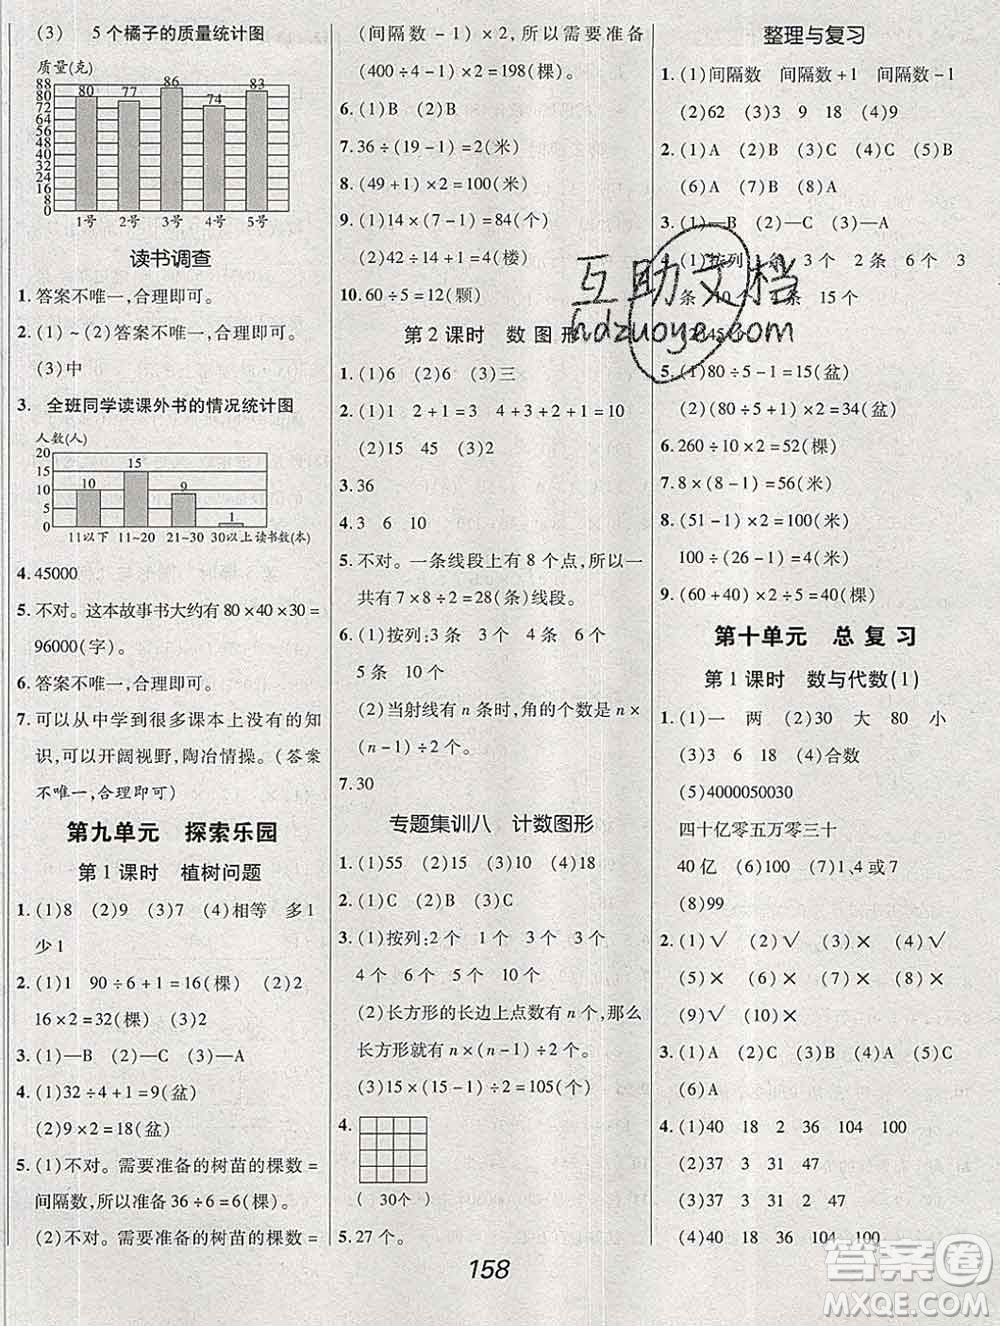 (3) 5个橘子的质量统计图
质量(克)
88
80
72
64
56
48
40
32
24
16
8
0
80 77 86 74 83
1号 2号 3号 4号 5号
读书调查
1. 答案不唯一,合理即可。
2. (1)~(2)答案不唯一,合理即可。
(3)中
3. 全班同学读课外书的情况统计图
人数(人)
20
15
10
5
0
10 15 9 1
11以下 11~20 21~30 30以上 读书数(本)
4. 45000
5. 不对。这本故事书大约有80×40×30=
96000(字)。
6. 答案不唯一,合理即可。
7. 可以从中学到很多课本上没有的知
识,可以开阔视野,陶冶情操。(答案
不唯一,合理即可)
第九单元 探索乐园
第1课时 植树问题
1. (1)8 (2)9 (3)7 (4)相等 多1
少1
2. (1)1 90÷6+1=16(棵) (2)2
16×2=32(棵) (3)2
3. (1)—B (2)—C (3)—A
4. (1)32÷4+1=9(盆)
(2)9×2=18(盆)
5. (1)不对。需要准备的树苗的棵数=
间隔数,所以准备36÷6=6(棵)。
(2)不对。需要准备的树苗的棵数=
(间隔数-1)×2,所以需要准备
(400÷4-1)×2=198(棵)。
6. (1)B (2)B
7. 36÷(19-1)=2(米)
8. (49+1)×2=100(米)
9. (1)14×(7-1)=84(个)
(2)42÷14+1=4(楼)
10. 60÷5=12(颗)
第2课时 数图形
1. (1)6 (2)6 (3)三
2. (1)1 2+1=3 4+3+2+1=10
(2)15 45 (3)2
3. 36
4. 3 6 10
5. 不对。一条线段上有8个点,所以一
共有7×8÷2=28(条)线段。
6. (1)按列:3条 3个 4条 6个
5条 10个
(2)当射线有n条时,角的个数是n×
(n-1)÷2个。
7. 30
专题集训八 计数图形
1. (1)55 (2)15 (3)10 (4)18
2. (1)C (2)B (3)C
3. (1)按列:2个 1个 3个 3个
4个 6个 5个 10个
(2)长方形的长边上点数有n个,那么
长方形就有n×(n-1)÷2个。
(3)15×(15-1)÷2=105(个)
4.
( 30个 )
5. 27个。
整理与复习
1. (1)间隔数 间隔数+1 间隔数-1
(2)62 (3)3 9 18 (4)9
2. (1)A (2)C (3)A (4)C (5)B
(6)A (7)B (8)A
3. (1)—B (2)—C (3)—A
4. (1)按列: 条 3个 2条 6个 3
条 10个 条 15个
(2)45
5. (1)80÷5-1=15(盆)
(2)(80÷5+1)×2=34(盆)
6. 260÷10×2=52(棵)
7. 8×(8-1)=56(米)
8. (51-1)×2=100(米)
100÷(26-1)=4(米)
9. (60+40)×2÷5=40(棵)
第十单元 总复习
第1课时 数与代数(1)
1. (1)一 两 (2)30 大 80 小
(3)3 6 18 (4)合数
(5)4000050030
四十亿零五万零三十
40亿 (6)100 (7)1、4或7
(8)99
2. (1)√ (2)√ (3)× (4)√
(5)× (6)× (7)× (8)×
(9)√ (10)×
3. (1)A (2)C (3)B (4)A (5)C
(6)A
4. (1)40 18 2 36 104 100
(2)37 3 31 47
(3)37 3 31 2 47
(4)40 18 36 104 100
158
互助文档
hdzuoye.com
答案圈
MXQE.COM